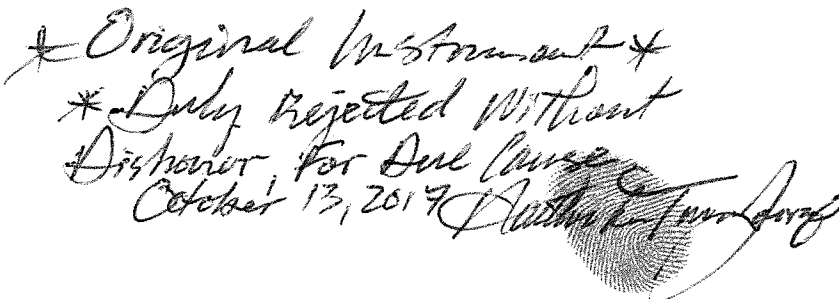 * Original Instrument *
* Duly Rejected Without
Dishonor, For Due Cause,
October 13, 2017